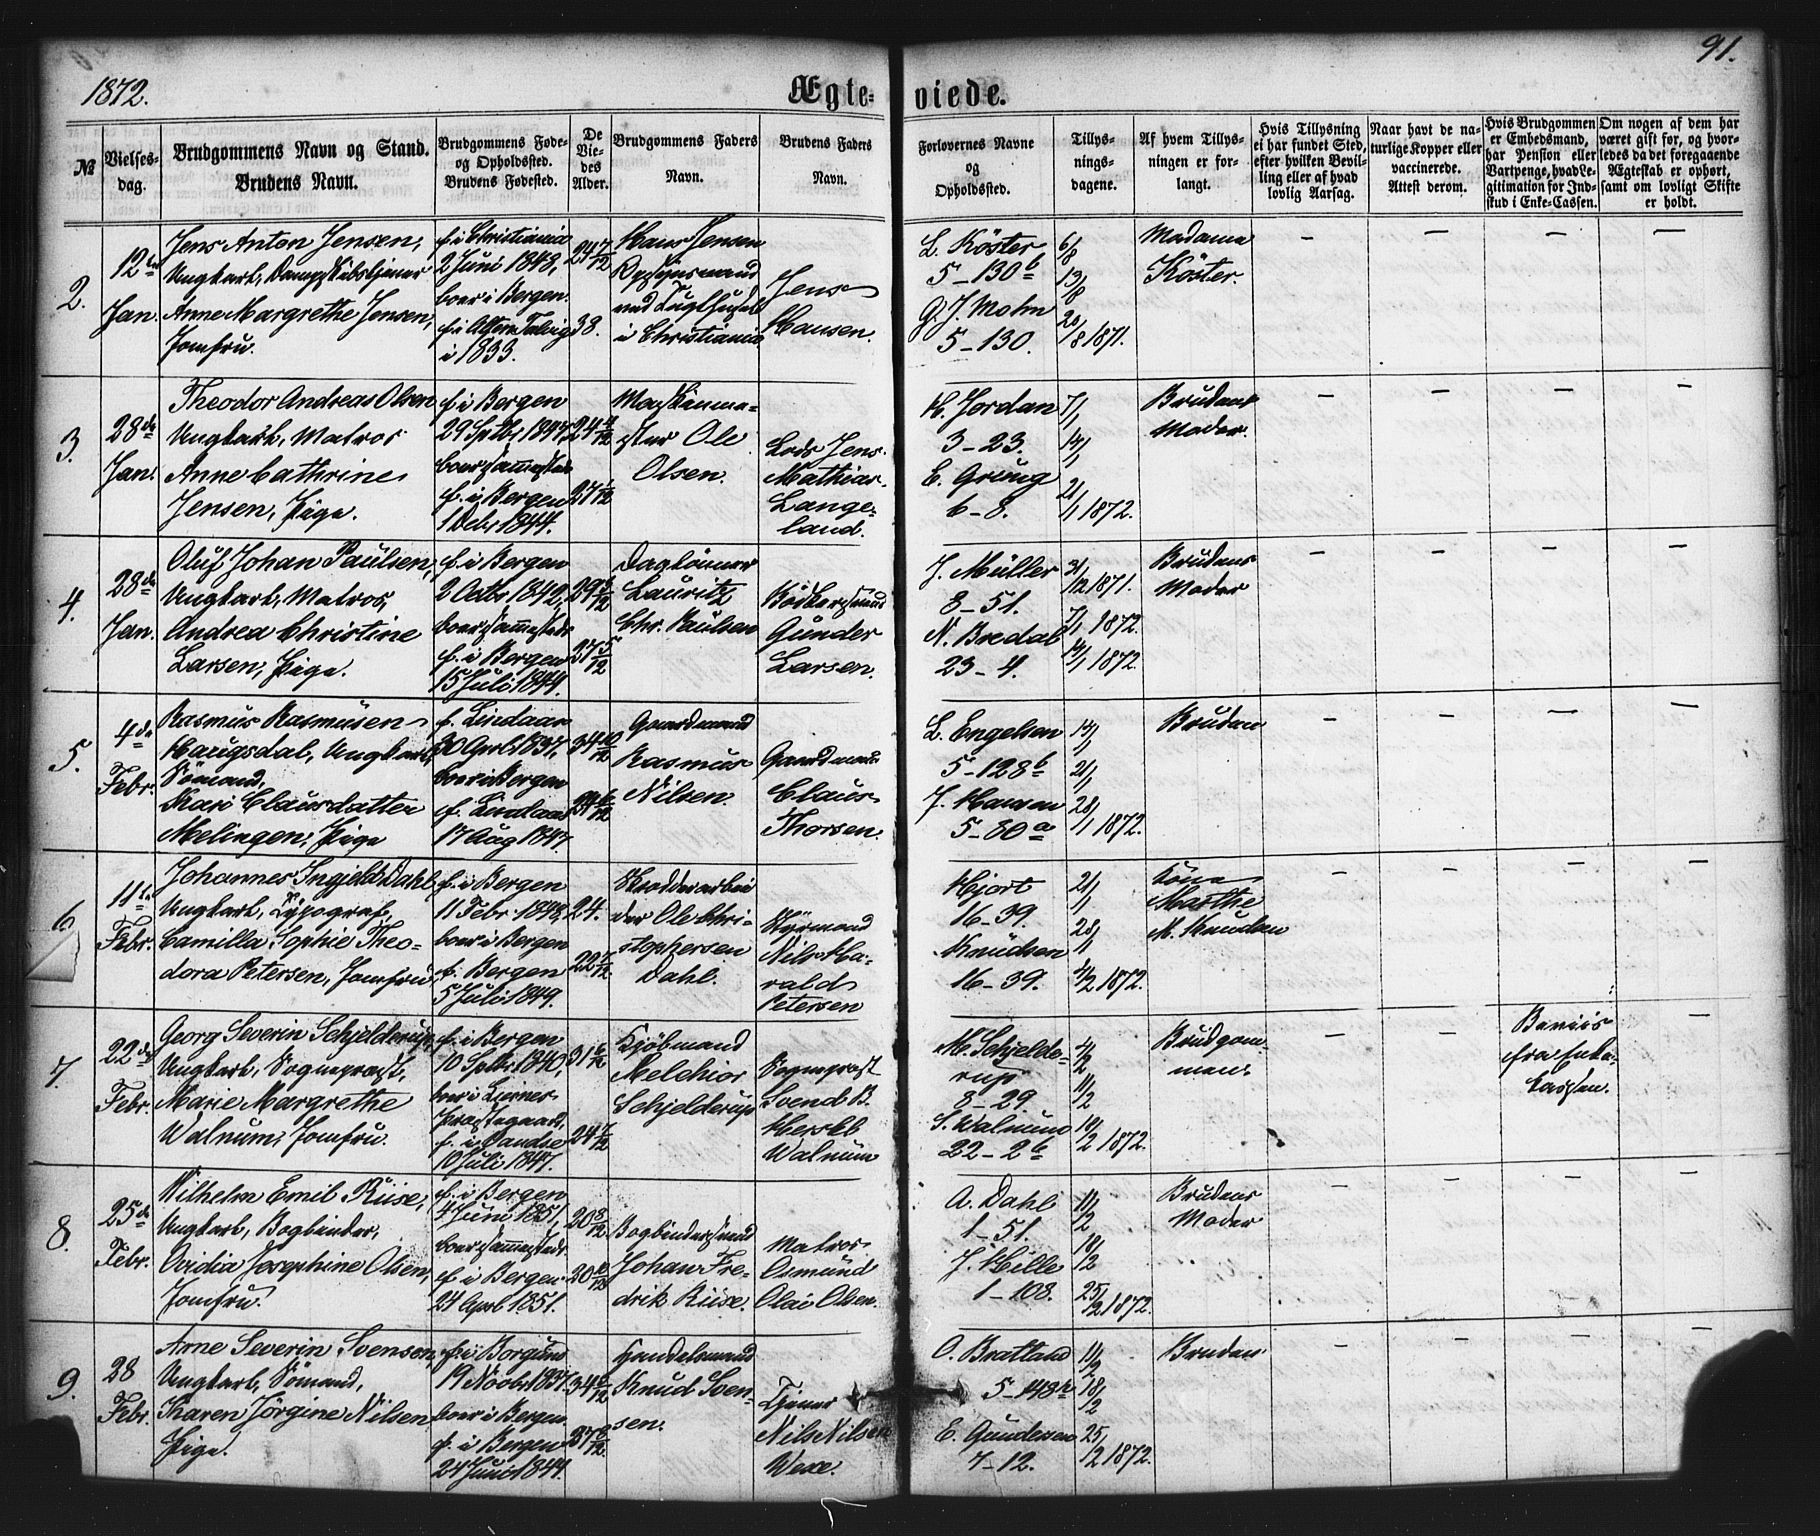 1872.
Ægte-
viede.
91.
№
Vielses-
dag.
Brudgommens Navn og Stand.
Brudens Navn.
Brudgommens Føde-
og Opholdssted.
Brudens Fødested.
De
Vie-
des
Alder.
Brudgommens Faders
Navn.
Brudens Faders
Navn.
Forlovernes Navne
og
Opholdssted.
Tillys-
nings-
dagene.
Af hvem Tillys-
ningen er for-
langt.
Hvis Tillysning
ei har fundet Sted,
efter hvilken Bevil-
ling eller af hvad
lovlig Aarsag.
Naar havt de na-
turlige Kopper eller
vaccinerede.
Attest derom.
Hvis Brudgommen
er Embedsmand,
har Pension eller
Vartpenge, hvad Le-
gitimation for Ind-
skud i Enke-Cassen.
Om nogen af dem har
været gift før, og hvor-
ledes da det foregaaende
Ægteskab er ophørt,
samt om lovligt Skifte
er holdt.
2.
12te
Jan.
Jens Anton Jensen,
Ungkarl, Dampskibstjener
Anne Margrethe Jensen,
Jomfru.
f. i Christiania
2 Juni 1848,
boer i Bergen.
f. i Alten Talvig
i 1833.
23 7/12
38.
Hans Jensen
Opsynsmand
ved Tugthuset
i Christiania
Jens
Hansen.
L. Köster
5-130 b
G. J. Mohn
5-130.
6/8
13/8
20/8 1871.
Madame
Köster.
3.
28de
Jan.
Theodor Andreas Olsen
Ungkarl, Matros
Anne Cathrine
Jensen, Pige.
f. i Bergen
29 Septb. 1847,
boer sammesteds
f. i Bergen
1 Debr 1844.
24 4/12
27 1/12
Maskinme-
ster Ole
Olsen.
Lods Jens
Mathias
Lange-
land.
H. Jordan
3-23.
E. Grung
6-8.
7/1
14/1
21/1 1872.
Brudens
Moder.
4.
28de
Jan.
Oluf Johan Paulsen,
Ungkarl, Matros,
Andrea Christine
Larsen, Pige.
f. i Bergen
2 Octbr 1842,
boer sammesteds
f. i Bergen
15 Juli 1844.
29 3/12
27 5/12
Daglönner
Lauritz
Chr. Paulsen
Bödkersvend
Gunder
Larsen.
J. Müller
8-51.
N. Bredal
23-4.
31/12 1871.
7/1 1872.
14/1 1872.
Brudens
Moder
5.
4de
Febr.
Rasmus Rasmusen
Haugsdal, Ungkarl,
Sömand,
Kari Clausdatter
Melingen, Pige
f. Lindaas
30 April 1837,
boer i Bergen
f. Lindaas
17 Aug 1847.
34 10/12
24 6/12
Gaardmand
Rasmus
Nilsen.
Gaardmand
Claus
Thorsen.
L. Engelsen
5-128 b
J. Hansen
5-80 a
14/1
21/1
28/1 1872.
Bruden
6
11te
Febr.
Johannes Ingjeld Dahl
Ungkarl, Typograf,
Camilla Sophie Theo-
dora Petersen, Jomfru
f. i Bergen
11 Febr. 1848,
boer i Bergen
f. Bergen
5 Juli 1849.
24.
22 7/12
Skrædderarbei
der Ole Chri-
stophersen
Dahl.
Styrmand
Nils Ha-
rald
Petersen
Hjort
16-39.
Knudsen
16-39.
21/1
28/1
4/2 1872.
Kone
Marthe
M. Knudsen
7.
22de
Febr.
Georg Severin Schjelderup,
Ungkarl, Sogneprest,
Marie Margrethe
Walnum, Jomfru.
f. i Bergen
10 Septbr 1840,
boer i Liernes
Præstegaard,
f. i Vandsø
10 Juli 1847.
31 5/12
24 7/12
Kjöbmand
Melchior
Schjelderup
Sogneprest
Svend B.
Hersleb
Walnum
M. Schjelde-
rup
8-29.
S. Walnum
22-2 b
4/2
11/2
18/2 1872.
Brudgom-
men.
Beviis
fra Enke-
Cassen.
8.
25de
Febr.
Vilhelm Emil Riise,
Ungkarl, Bogbinder,
Ovidia Josephine Olsen,
Jomfru.
f. i Bergen
4 Juni 1851,
boer sammesteds
f. i Bergen
24 April 1851.
20 8/12
20 10/12
Bogbindersvend
Johan Fre-
drik Riise.
Matros
Osmund
Olai Olsen.
A. Dahl
1-51.
J. Hille
1-108.
11/2
18/2
25/2 1872.
Brudens
Moder
9.
28
Febr.
Arne Severin Svensen,
Ungkarl, Sömand,
Karen Jörgine Nilsen
Pige.
f. i Borgund
19 Novbr 1837.
boer i Bergen.
f. i Bergen
24 Juni 1844.
34 3/12
27 8/12
Handelsmand
Knud Sven-
sen.
Tjener
Nils Nilsen
Wexe.
O. Brattland
5-148 b
E. Gundersen
7-12.
11/2
18/2
25/2 1872.
Bruden